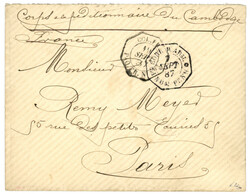 Corps expéditionnaire du Cambodge
France
Monsieur
SEPT
87
Remy Meyer
55 rue des petites Ecuries 55
Paris